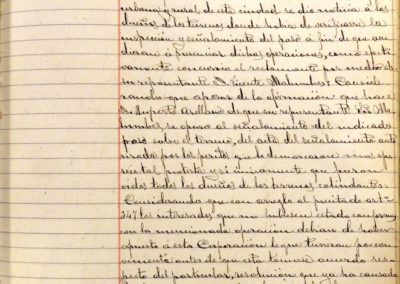 urbana y rural, de esta ciudad se dio noticia á los
dueños de los terrenos donde habia de verificarse la
inspeccion y señalamiento del paso á fin de que acu
dieran á presenciar dichas operaciones, como efecti
vamente concurrió el reclamante por medio de
su representante D. Vicente Malumbres: Conside
rando que apesar de la afirmacion que hace
D. Ruperto Arellano de que su representante Sr. Ma-
lumbres, se opuso al señalamiento del indicado
paso sobre el terreno, del acta del señalamiento auto
rizada por los peritos que lo demarcaron no apa
rece tal protesta y si unicamente que fueron
oidos todos los dueños de los terrenos colindantes:
Considerando que con arreglo al precitado artº
347 los interesados que no hubiesen estado conformes
con la mencionada operacion debian de haber
expuesto á esta Corporacion lo que tuvieran por con
veniente antes de que esta tomara acuerdo res-
pecto del particular, resolucion que ya ha causado